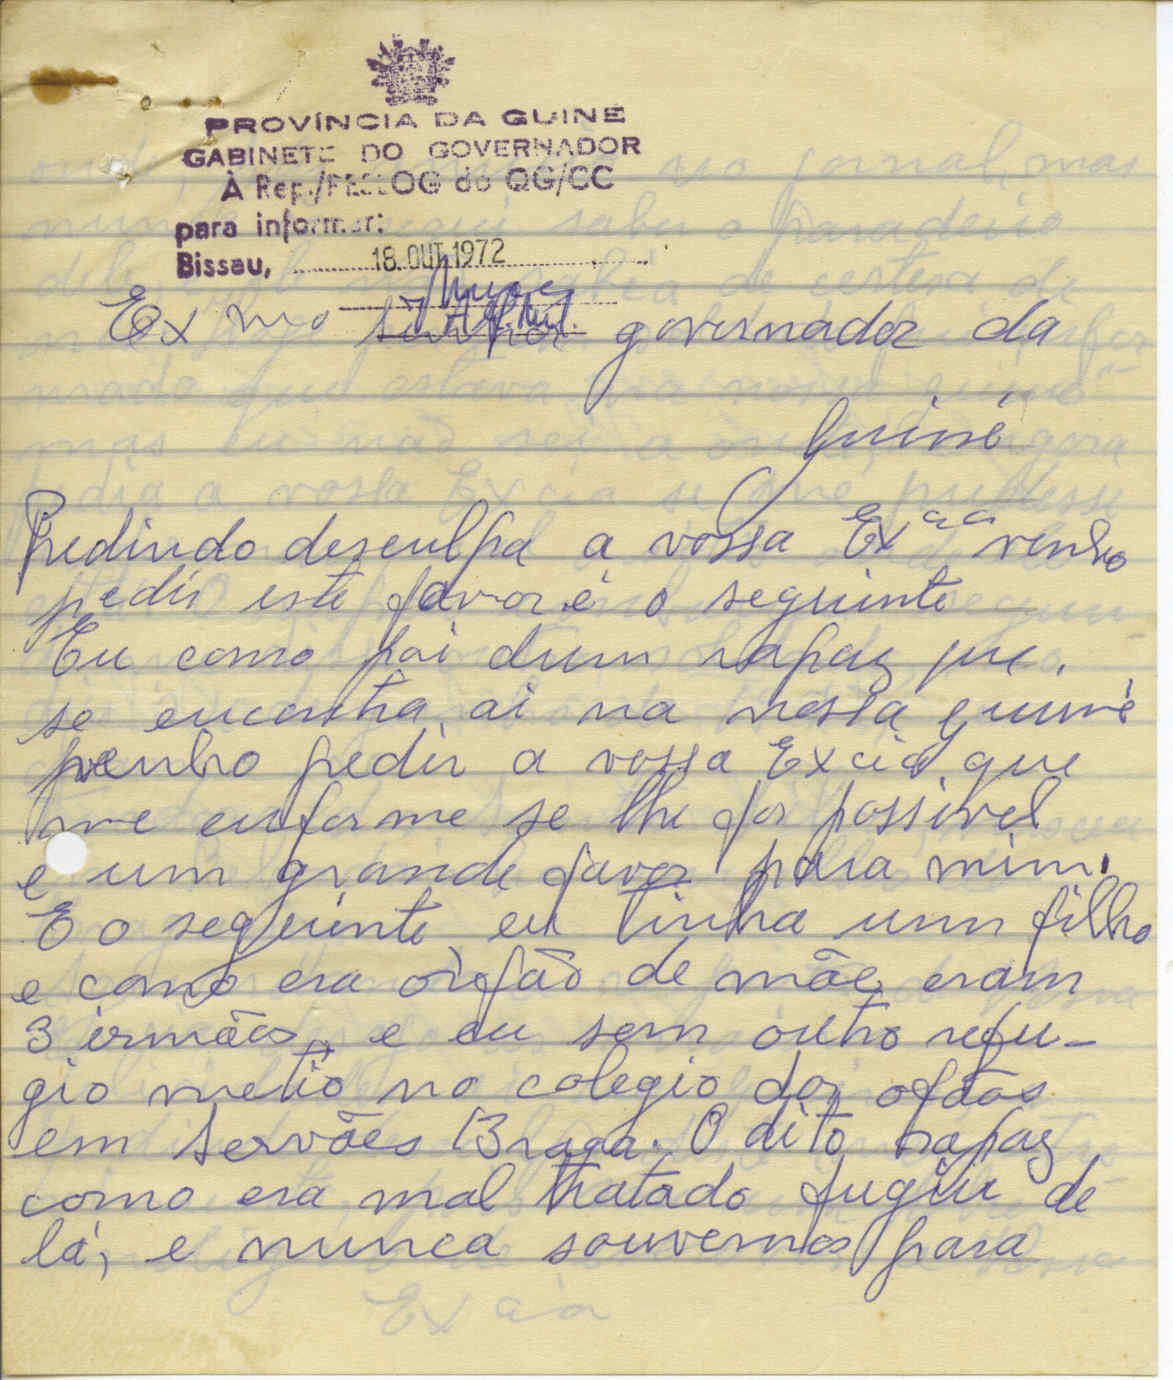 PROVÍNCIA DA GUINÉ
GABINETE DO GOVERNADOR
À Rep./PESLOG do QG/CC
para informar:
Bissau, 18.OUT.1972
Ex mo senhor governador da
Guiné
Pedindo desculpa a vossa Exªa venho
pedir este favor é o seguinte
Eu como pai dum rapaz que
se encontra ai na nossa guiné
venho pedir a vossa Excia que
me enforme se lhe for possivel
e um grande favor para mim.
E o seguinte eu tinha um filho
e como era orfão de mãe eram
3 irmãos, e eu sem outro refu-
gio metio no colegio dos ofãos
em Servães Braga. O dito rapaz
como era mal tratado fugiu de
lá, e nunca souvemos para